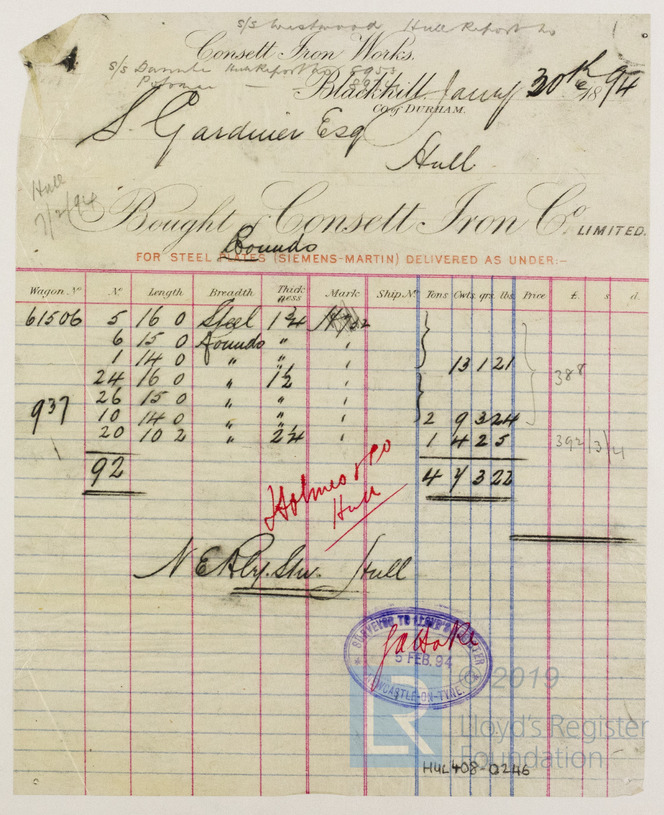 s/s Westwood Hull Report No
Consett Iron Works.
s/s Danube Hull Report No 8953
Blackhill Jany 30th 1894
Co of DURHAM.
S. Gardiner Esq
Hull
Hull
7/2/94
Bought of Consett Iron Co. LIMITED.
Rounds
FOR STEEL PLATES (SIEMENS-MARTIN) DELIVERED AS UNDER:-
Wagon No No Length Breadth Thickness Mark Ship No Tons Cwts. qrs. lbs. Price £ s d
61506 5 16 0 Steel 1 3/4
6 15 0 Rounds " "
1 14 0 " " " 13 1 21
24 16 0 " 1 1/2 " 388
26 15 0 " " "
937 10 14 0 " " " 2 9 3 24
20 10 2 " 2 1/4 " 1 4 2 5 392/3/4
92 4 7 3 22
Holmes & Co
Hull
N E Rly. Stn. Hull
SURVEYOR TO LLOYD'S REGISTER
5 FEB. 94
NEWCASTLE-ON-TYNE.
© 2019
LR Lloyd's Register
Foundation
HUL408-0246